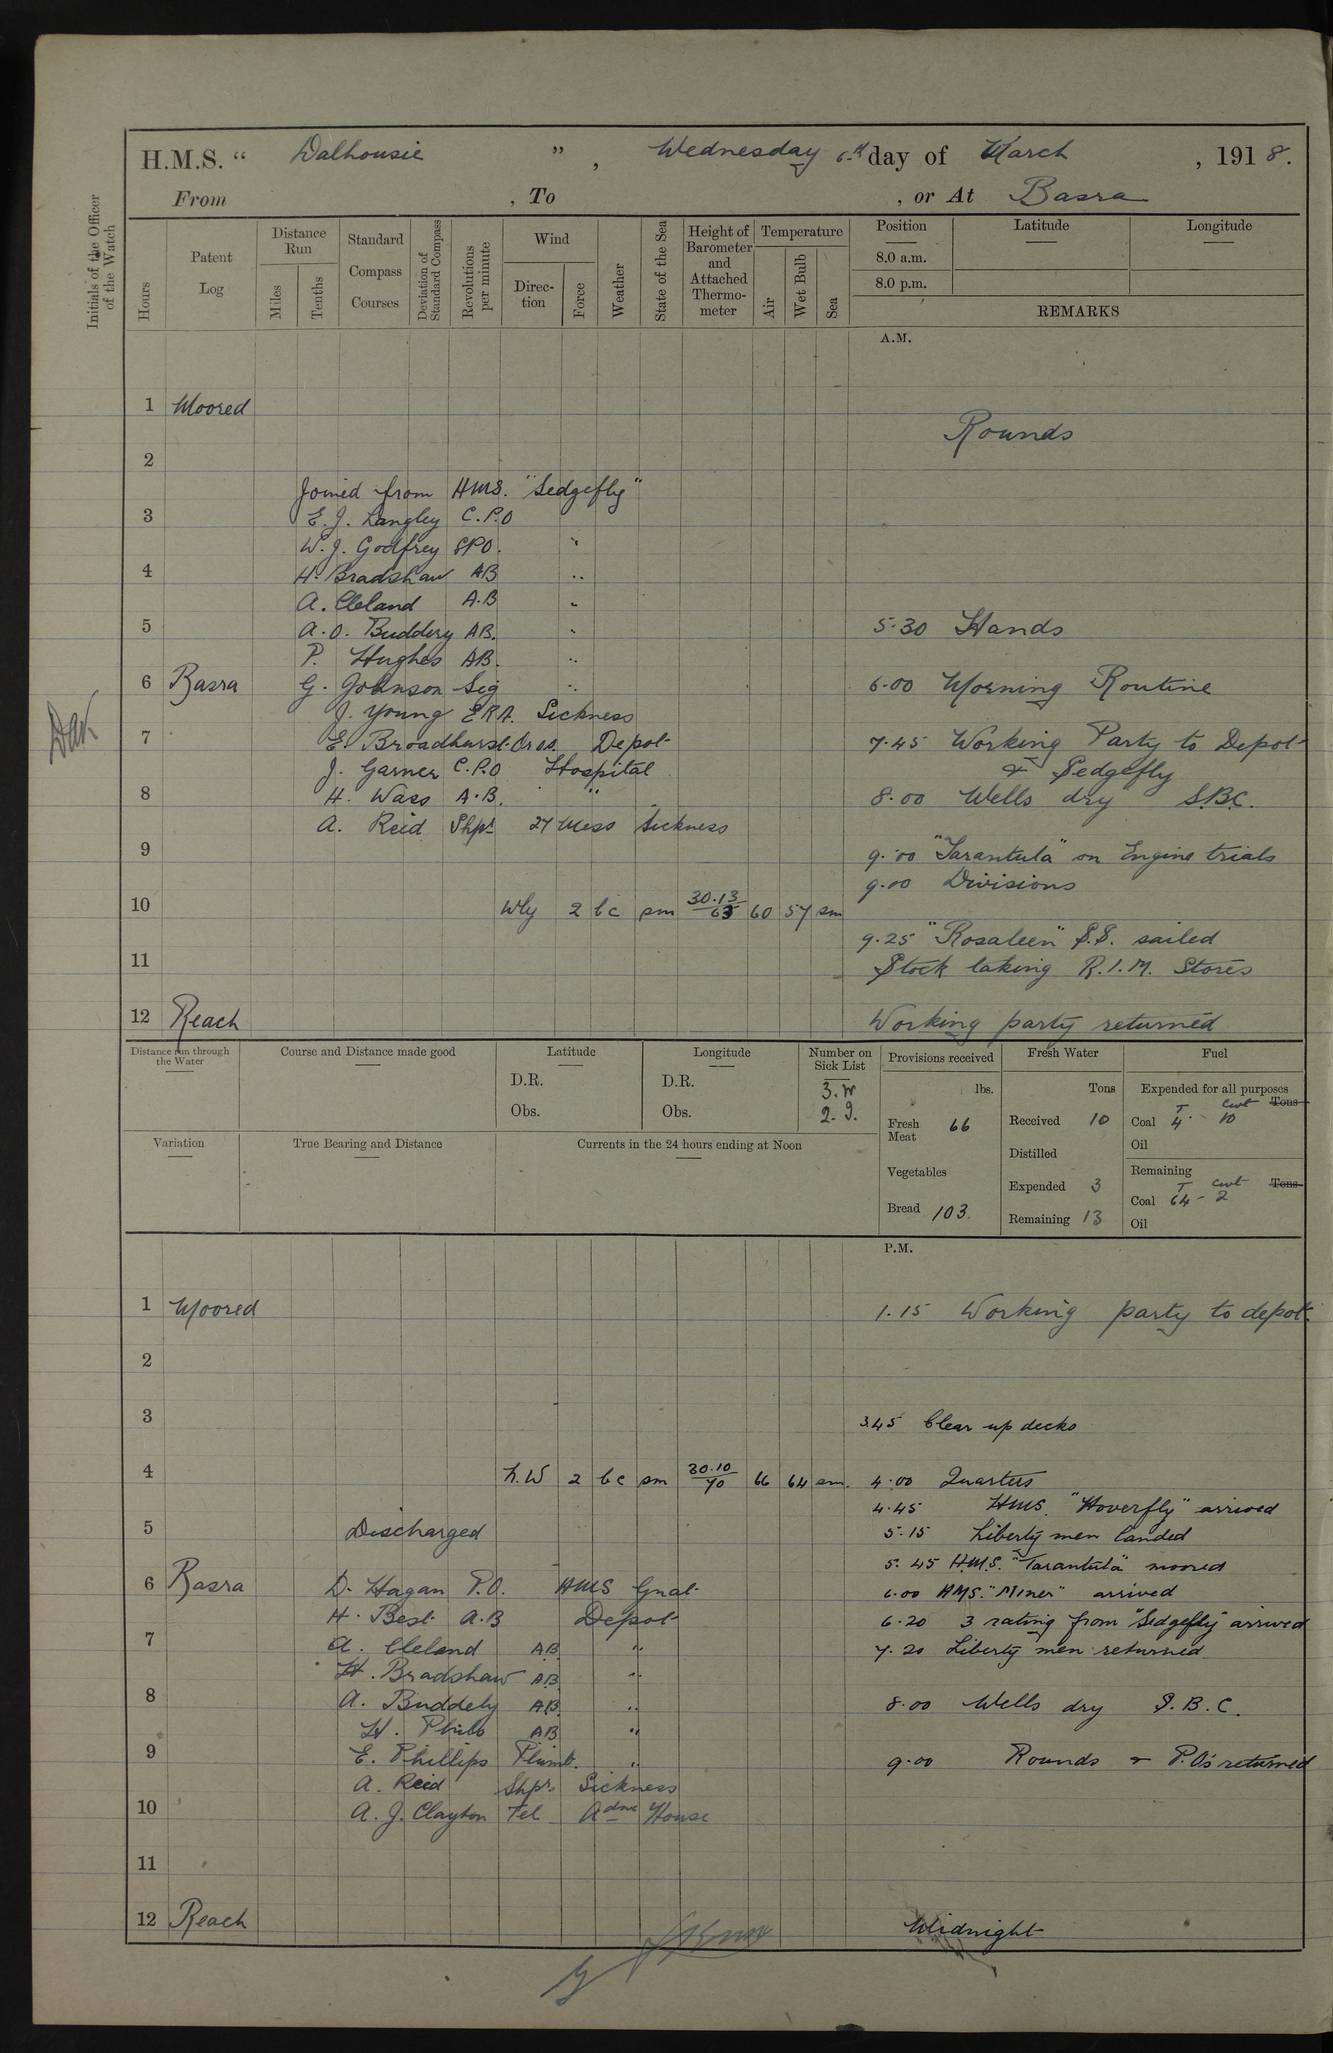 H.M.S. " Dalhousie ", Wednesday 6th day of March, 1918.
From , To , or At Basra
Initials of the Officer of the Watch
Hours
Patent Log
Distance Run
Miles
Tenths
Standard Compass Courses
Deviation of Standard Compass
Revolutions per minute
Wind
Direction
Force
Weather
State of the Sea
Height of Barometer and Attached Thermometer
Temperature
Air
Wet Bulb
Sea
Position
8.0 a.m.
8.0 p.m.
Latitude
Longitude
REMARKS
A.M.
1 Moored
Rounds
2
Joined from HMS. "Sedgefly"
3 E. J. Langley C.P.O
W. J. Godfrey SPO. "
4 H. Bradshaw AB "
A. Cleland A.B "
5 A. O. Buddery AB. "
5.30 Hands
P. Hughes AB. "
6 Basra G. Johnson Sig "
6.00 Morning Routine
J. Young ERA. Sickness
7 E. Broadhurst Ords. Depot
7.45 Working Party to Depot
& Sedgefly
J. Garner C.P.O Hospital
8 H. Wass A.B. "
8.00 Wells dry S.B.C.
A. Reid Shpt 27 Mess Sickness
9
9.00 "Tarantula" on Engine trials
9.00 Divisions
10 Wly 2 bc sm 30.13/63 60 57 sm
9.25 "Rosaleen" S.S. sailed
11
Stock taking R.I.M. Stores
12 Reach
Working party returned
Distance run through the Water
Course and Distance made good
Latitude
D.R.
Obs.
Longitude
D.R.
Obs.
Number on Sick List
3. W
2. I.
Provisions received
lbs.
Fresh Meat 66
Vegetables
Bread 103
Fresh Water
Tons
Received 10
Distilled
Expended 3
Remaining 13
Fuel
Expended for all purposes
T Cwt Tons
Coal 4 10
Oil
Remaining
T Cwt Tons
Coal 64 - 2
Oil
Variation
True Bearing and Distance
Currents in the 24 hours ending at Noon
P.M.
1 Moored
1.15 Working party to depot
2
3
3.45 Clear up decks
4 N.W 2 bc sm 30.10/70 66 64 sm.
4.00 Quarters
4.45 HMS. "Hoverfly" arrived
5 Discharged
5.15 Liberty men landed
5.45 H.M.S. "Tarantula" moored
6 Basra D. Hagan P.O. HMS Gnat
6.00 HMS. "Miner" arrived
H. Best A.B Depot
6.20 3 rating from "Sedgefly" arrived
7 A. Cleland AB "
7.20 Liberty men returned
H. Bradshaw AB "
8 A. Buddely AB "
8.00 Wells dry S.B.C.
H. Philo AB "
9 E. Phillips Plumb. "
9.00 Rounds & P.Os returned
A. Reid Shpr. Sickness
10 A. J. Clayton Tel Adml House
11
12 Reach
Midnight